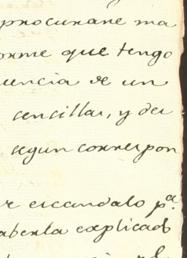 procurare ma
orme que tengo
uencia de un
sencillas, y der
segun correspon
r escandalo pª.
aberla explicado